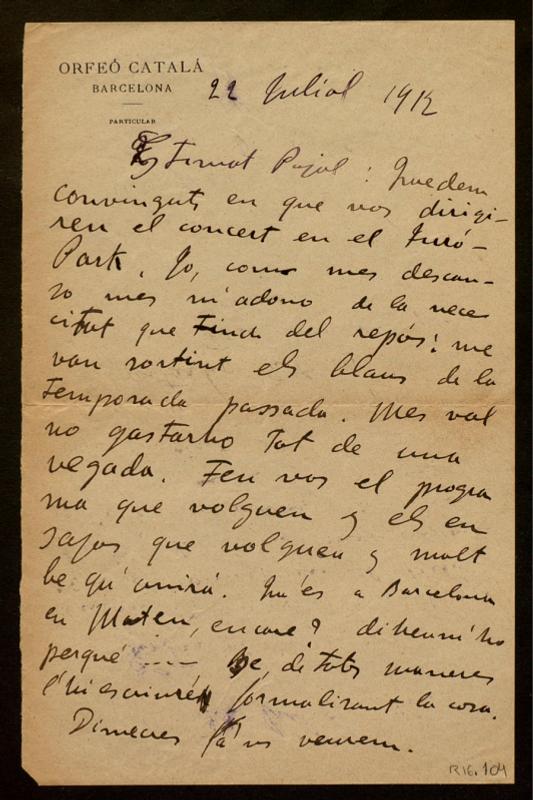 ORFEÓ CATALÁ
BARCELONA
PARTICULAR
22 Juliol 1912
Estimat Pujol: Quedem
convinguts en que vos dirigi-
ren el concert en el Turó-
Park. Jo, com mes descan-
so mes m'adono de la nece
citat que tinch del repós: me
van sortint els blaus de la
temporada passada. Mes val
no gastarho tot de una
vegada. Feu vos el progra
ma que volgueu y els en
sajos que volgueu y molt
be qu'anirá. Qu'es a Barcelona
en Maten, encare? diheumho
perqué .... Be, de tots maneres
l'hi escriuré formalisant la cosa.
Dimecres ja'ns veurem.
R16.104